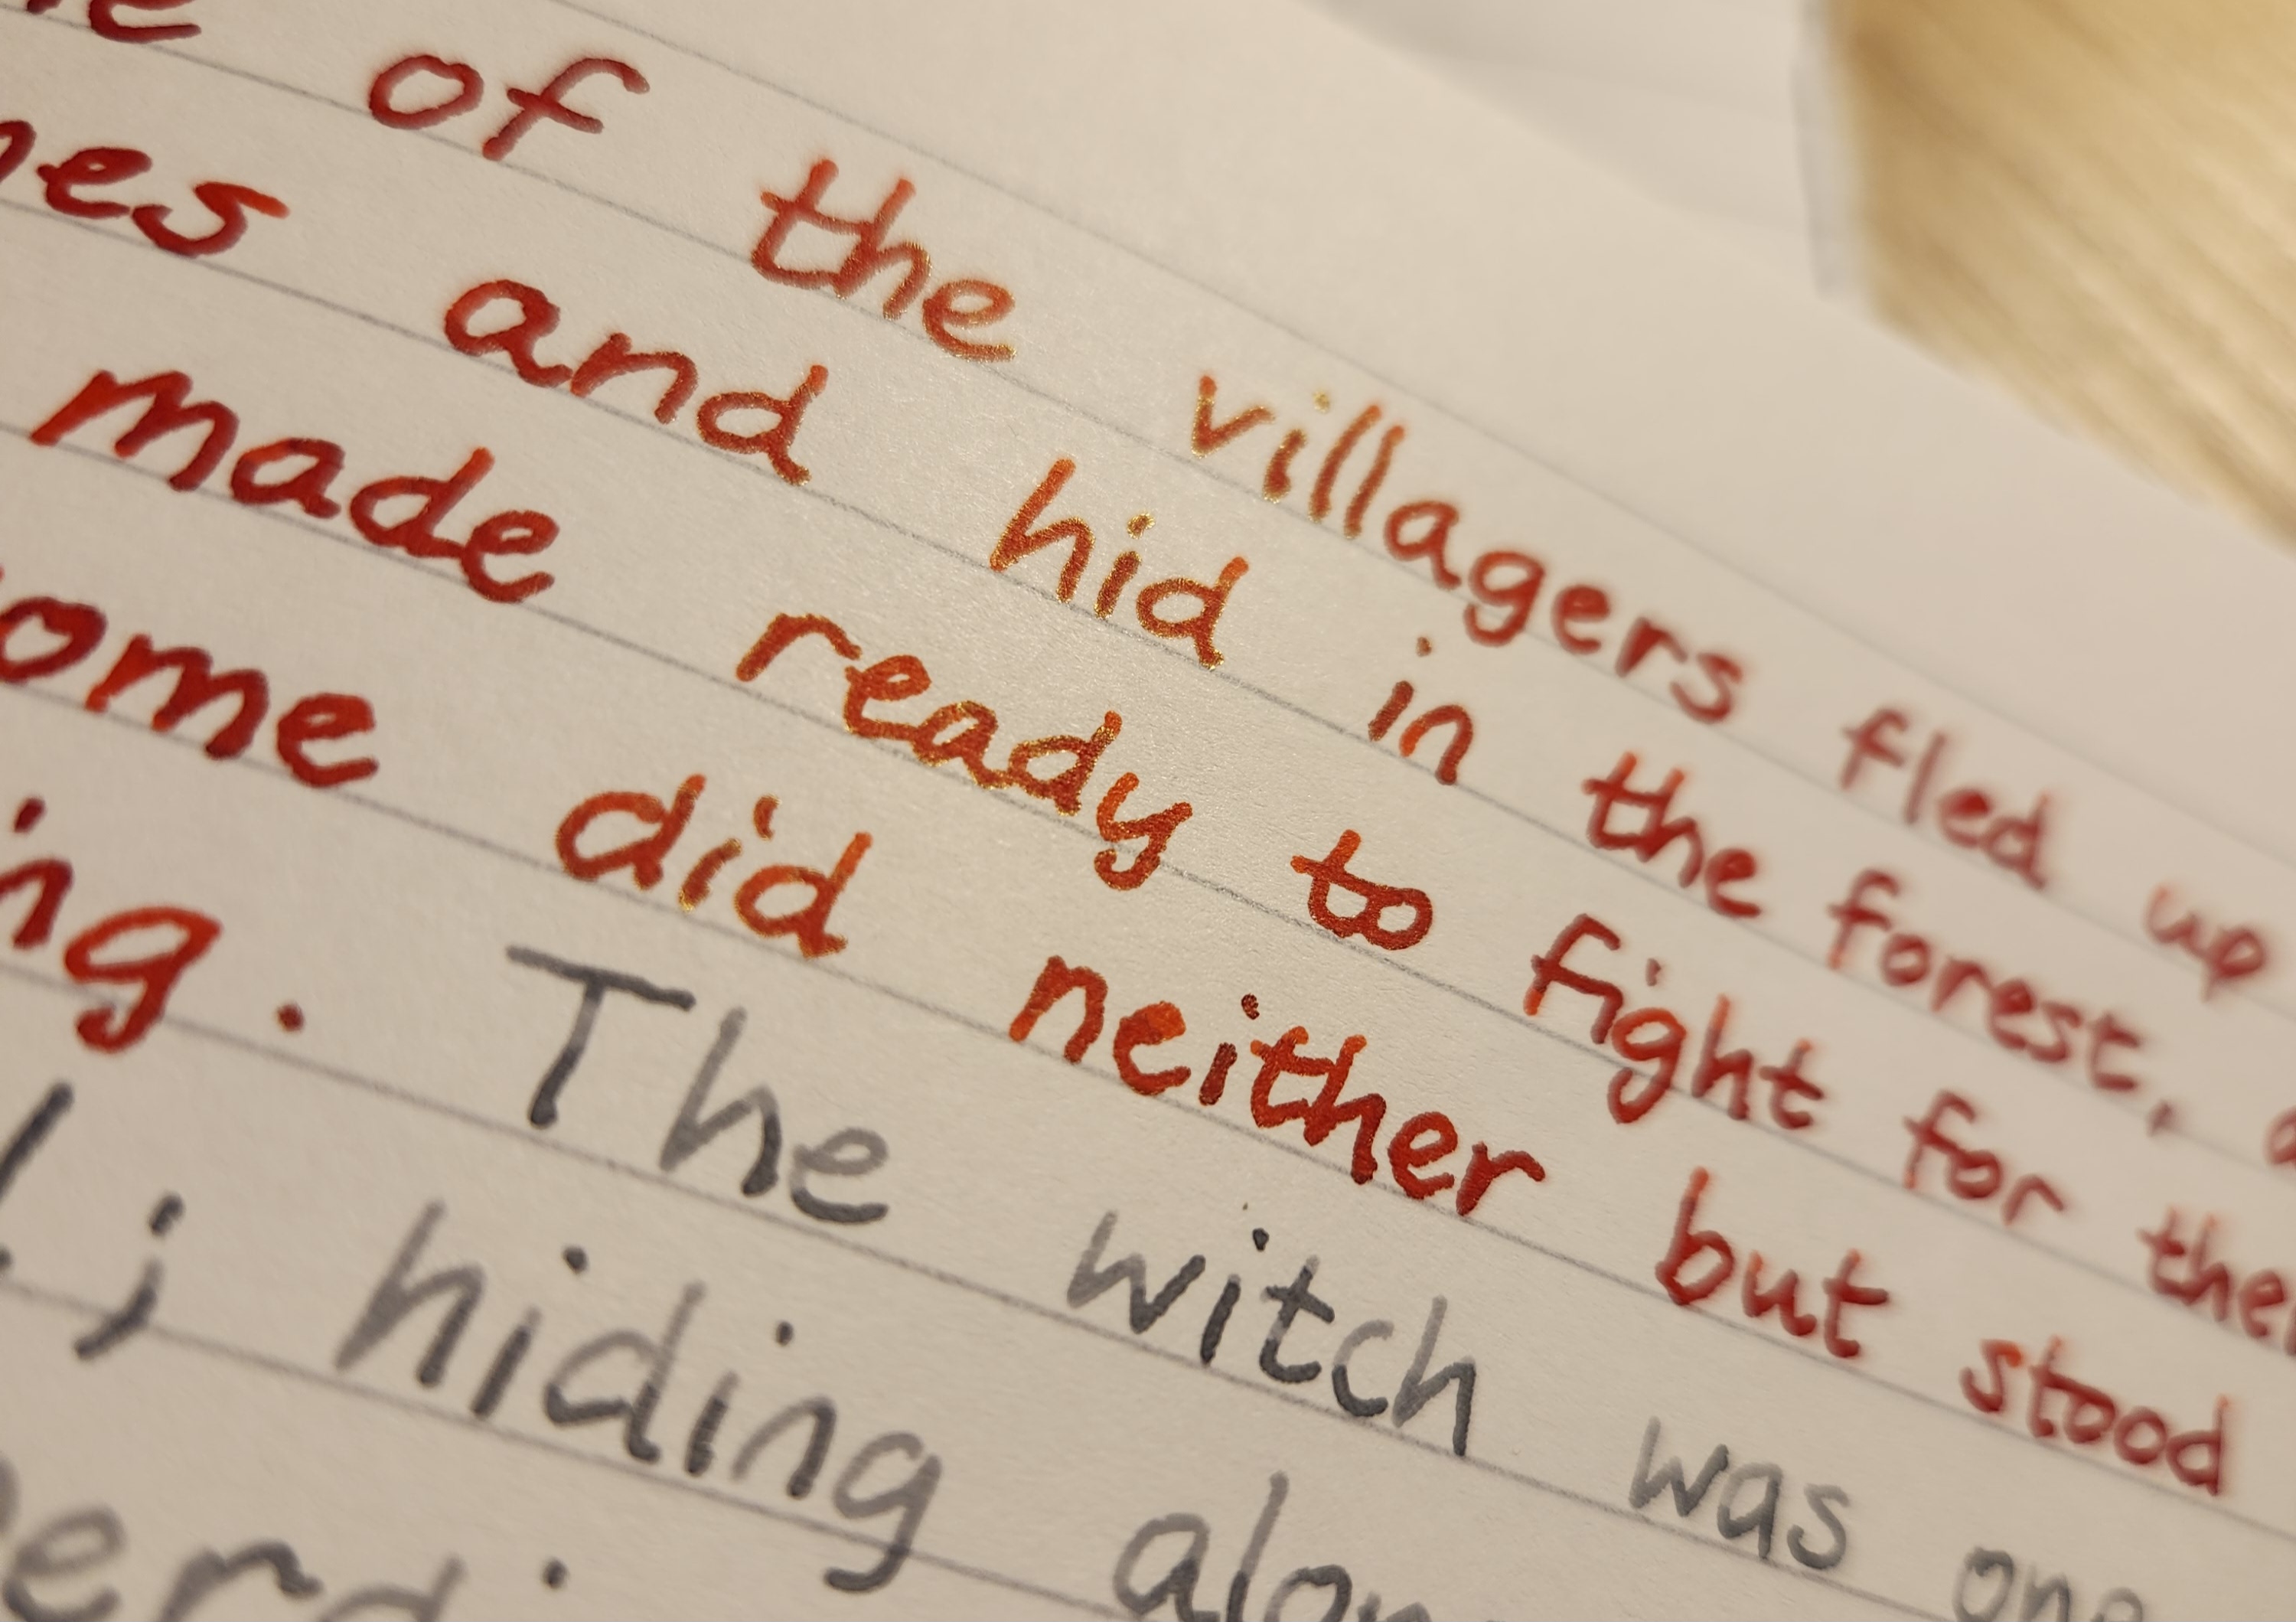 of the villagers fled up
nes and hid in the forest,
made ready to fight for thei
ome did neither but stood
ing. The witch was one
; hiding alon
erdi